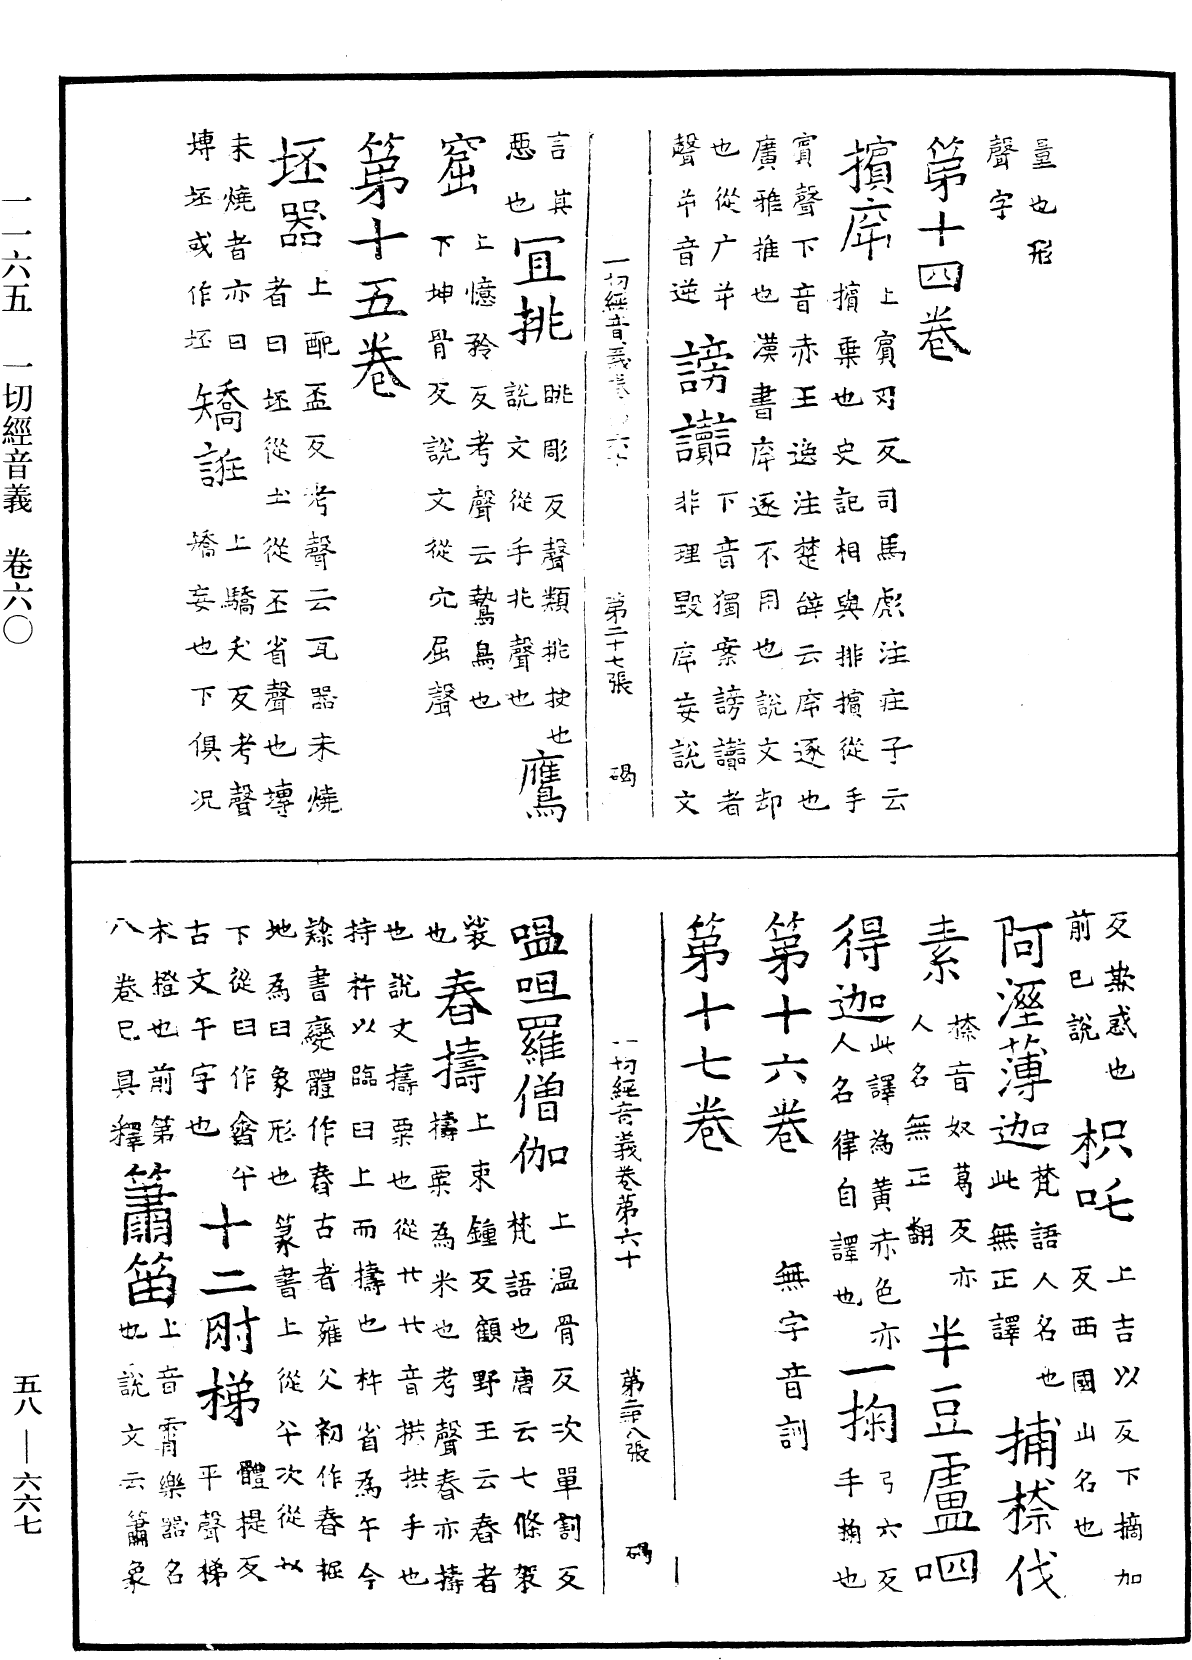 一一六五　一切經音義　卷六〇
五八—六六七
量也形
聲字
第十四卷
擯庌上賓刃反司馬彪注庄子云
擯棄也史記相與排擯從手
賓聲下音赤王逸注楚辭云庌逐也
廣雅推也漢書庌逐不用也說文却
也從广屰
聲屰音逆
謗讟下音獨案謗讟者
非理毀庌妄說文
一切經音義卷第六十　第二十七張　碣
言其
惡也
宜挑眺彫反聲類挑抉也
說文從手兆聲也
鷹
窟上憶矜反考聲云鷙鳥也
下坤骨反說文從穴屈聲
第十五卷
坯器上配盃反考聲云瓦器未燒
者曰坯從土從丕省聲也塼
未燒者亦曰
塼坯或作坯
矯誑上驕夭反考聲
矯妄也下俱況
反欺惑也
前已說
枳吒上吉以反下摘加
反西國山名也
阿溼薄迦梵語人名也
此無正譯
捕㮈伐
素㮈音奴葛反亦
人名無正翻
半豆盧呬
得迦此譯為黃赤色亦
人名律自譯也
一掬弓六反
手掬也
第十六卷　無字音訓
第十七卷
一切經音義卷第六十　第二十八張　碣
嗢呾羅僧伽上溫骨反次單割反
梵語也唐云七條袈
裟
也
舂擣上束鍾反顧野王云舂者
擣粟為米也考聲舂亦擣
也說文擣粟也從廾廾音拱拱手也
持杵以臨臼上而擣也杵省為午今
隸書變體作舂古者雍父初作舂掘
地為臼象形也篆書上從午次從𠬞
下從臼作舂午
古文午字也
十二肘梯體提反
平聲梯
木橙也前第
八卷已具釋
簫笛上音霄樂器名
也說文云簫象